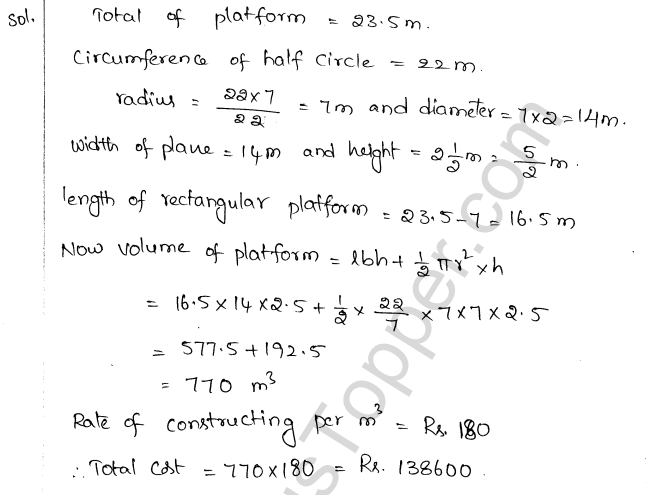 Sol. Total of platform = 23.5m.
Circumference of half circle = 22m.
radius = 22×7/22 = 7m and diameter = 7×2 = 14m.
width of plane = 14m and height = 2 1/2 m = 5/2 m.
length of rectangular platform = 23.5-7 = 16.5m
Now volume of platform = lbh + 1/2 πr² × h
= 16.5 × 14 × 2.5 + 1/2 × 22/7 × 7 × 7 × 2.5
= 577.5 + 192.5
= 770 m³
Rate of constructing per m³ = Rs. 180
∴ Total cost = 770×180 = Rs. 138600.
usTopper.com